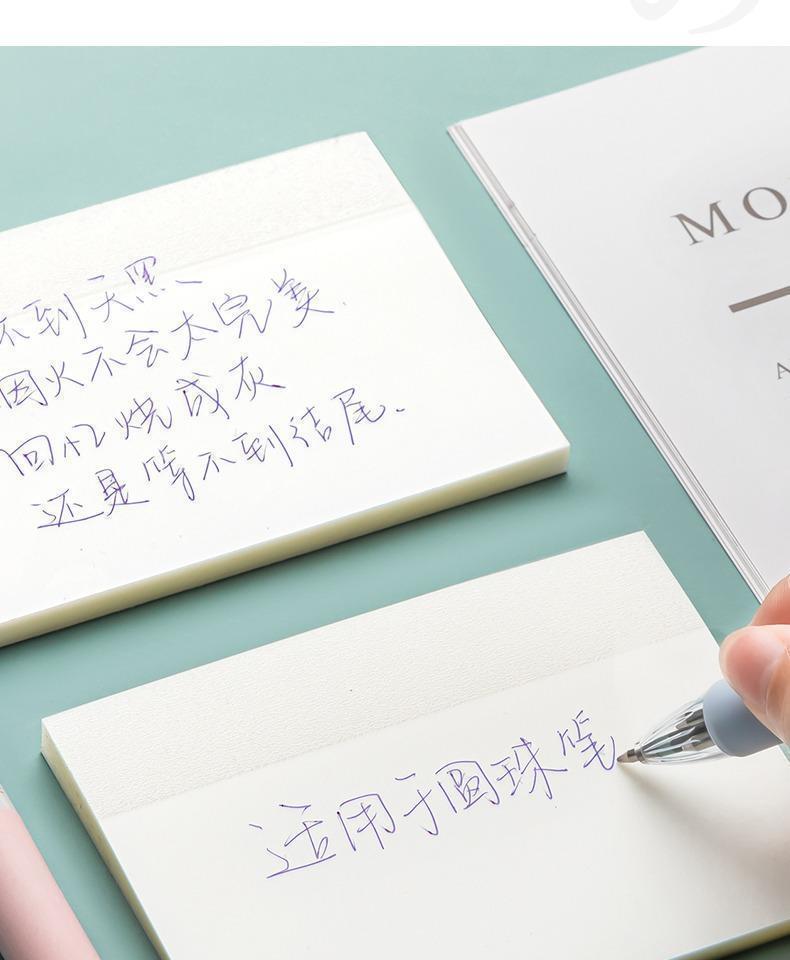 不到天黑、
烟火不会太完美.
回忆烧成灰
还是等不到结尾.
MO
A
适用于圆珠笔